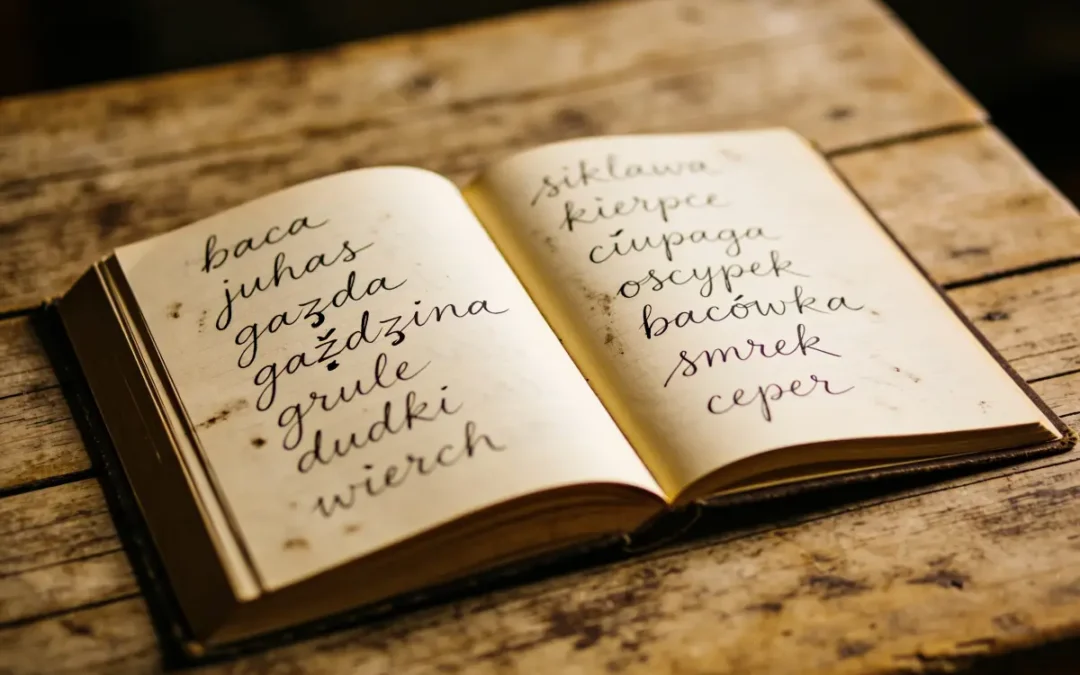 baca
juhas
gazda
gaździna
grule
dudki
wierch
siklawa
kierpce
ciupaga
oscypek
bacówka
smrek
ceper